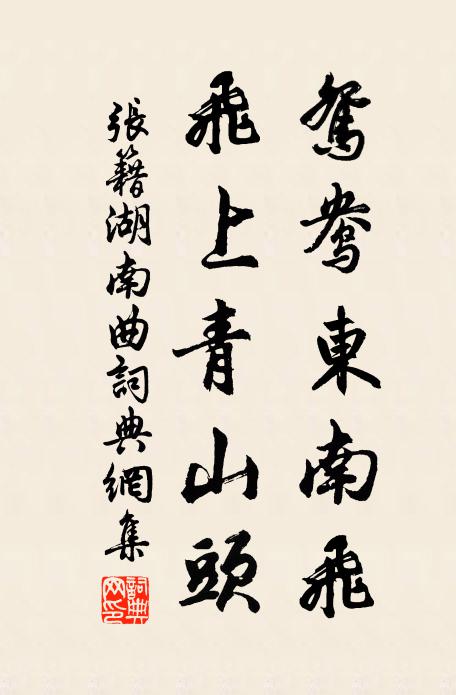 鴛鴦東南飛
飛上青山頭
張籍湖南曲詞典網集
詞典網印